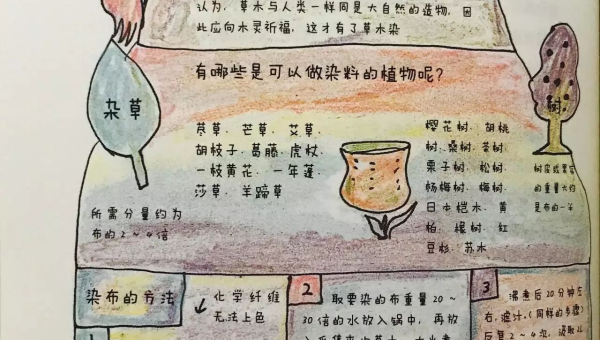 认为,草木与人类一样同是大自然的造物,因
此应向木灵祈福,这才有了草木染
有哪些是可以做染料的植物呢?
杂草
荩草、芒草、艾草、
胡枝子、葛藤、虎杖、
一枝黄花、一年蓬、
莎草、羊蹄草
所需分量约为
布的2~4倍
树
樱花树、胡桃
树、桑树、茶树
栗子树、松树、
杨梅树、梅树、
日本桤木、黄
柏、橡树、红
豆杉、苏木
树皮或果实
的重量大约
是布的一半
染布的方法
化学纤维
无法上色
1
2
取要染的布重量20~
30倍的水放入锅中,再放
3
沸煮后20分钟左
右,滤汁。(同样的步骤)
反复2~4次,